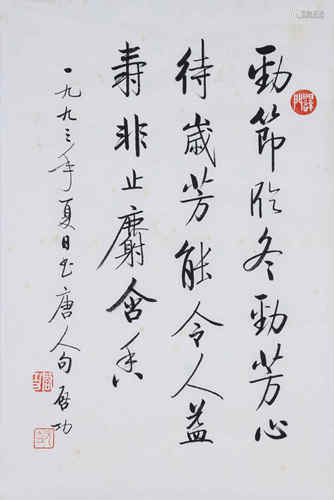 勁節臨冬勁芳心
待歲芳能令人益
壽非止麝含香
一九九三年夏日書唐人句啟功